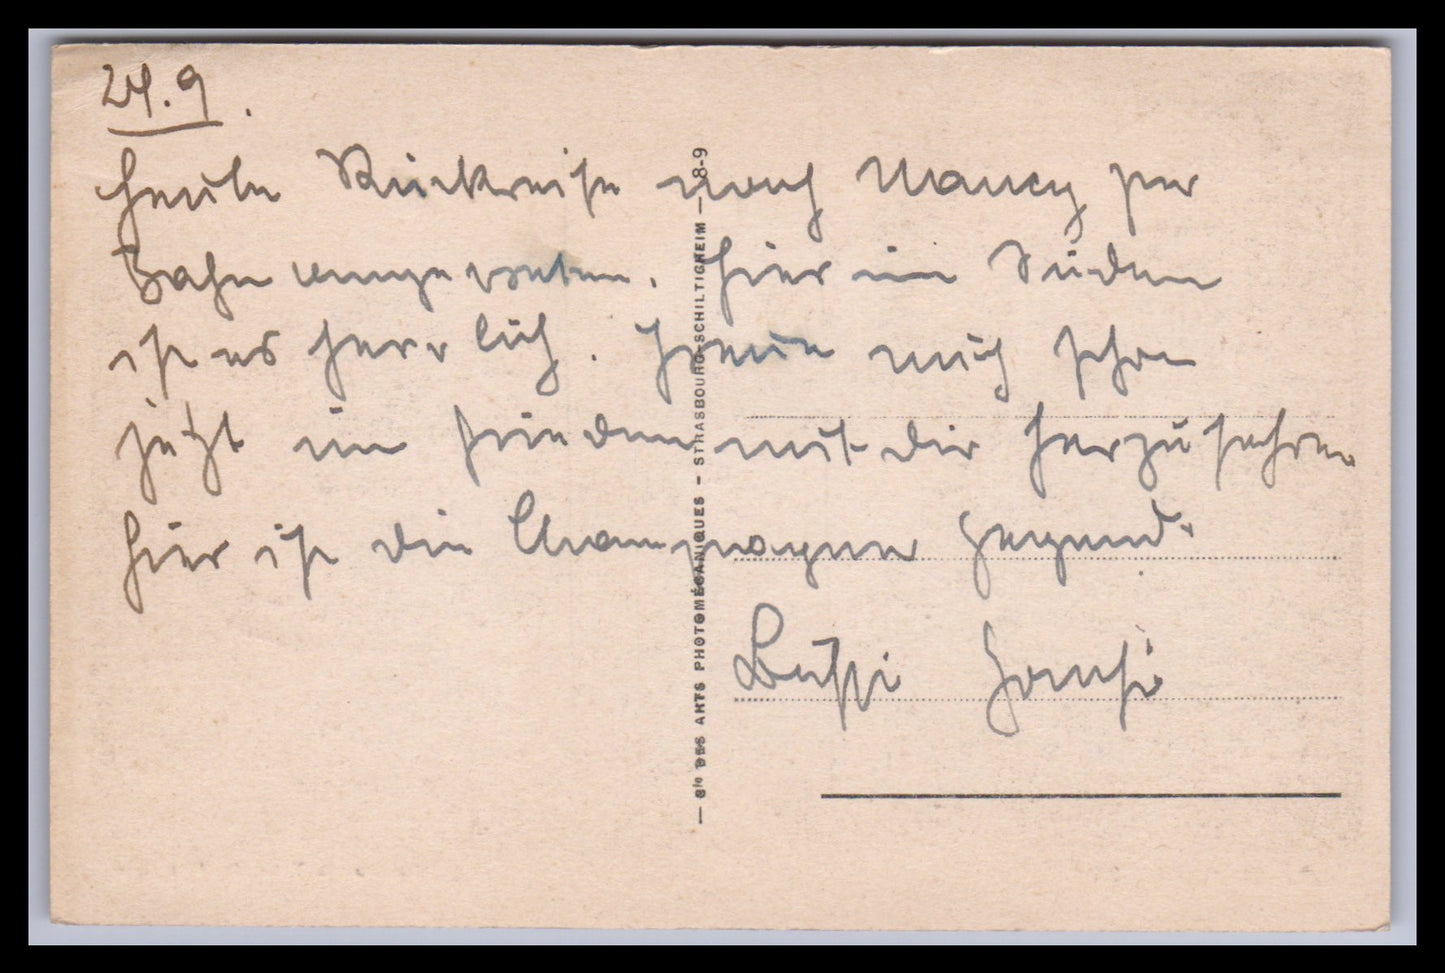 24.9.
Heute Rückreise nach Nancy per
Bahn angetreten. Hier im Süden
ist es herrlich. Freue mich schon
jetzt im Frieden mit dir herzufahren
hier ist die Champagner Gegend.
Bussi Hansi
— Cie DES ARTS PHOTOMÉCANIQUES - STRASBOURG-SCHILTIGHEIM — 8-9